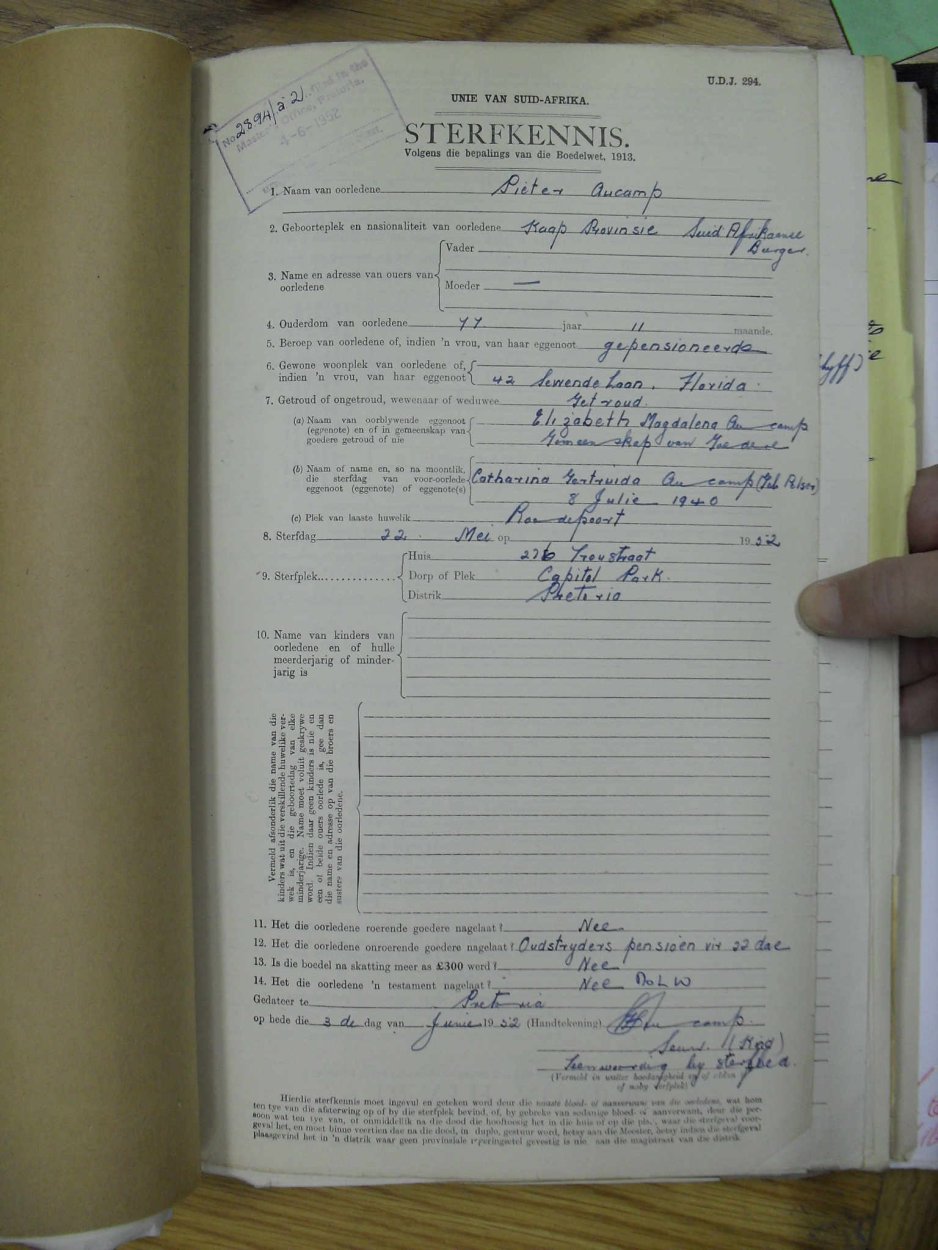 U.D.J. 294.
UNIE VAN SUID-AFRIKA.
STERFKENNIS.
Volgens die bepalings van die Boedelwet, 1913.
No. 2894/52 in the
Master's Office, Pretoria.
4-6-1952
1. Naam van oorledene Pieter Aucamp
2. Geboorteplek en nasionaliteit van oorledene Kaap Provinsie Suid Afrikaanse
Burger.
3. Name en adresse van ouers van oorledene
Vader
Moeder —
4. Ouderdom van oorledene 77 jaar 11 maande.
5. Beroep van oorledene of, indien 'n vrou, van haar eggenoot gepensioneerde
6. Gewone woonplek van oorledene of,
indien 'n vrou, van haar eggenoot 42 Sewende Laan. Florida.
7. Getroud of ongetroud, wewenaar of weduwee Getroud.
(a) Naam van oorblywende eggenoot Elizabeth Magdalena Aucamp
(eggenote) en of in gemeenskap van
goedere getroud of nie Gemeenskap van Goedere
(b) Naam of name en, so na moontlik,
die sterfdag van voor-oorlede Catharina Gertruida Aucamp (Geb Pelser)
eggenoot (eggenote) of eggenote(s) 8 Julie 1940
(c) Plek van laaste huwelik Roodepoort
8. Sterfdag 22. Mei op 1952
9. Sterfplek
Huis 276 Troustraat
Dorp of Plek Capitol Park.
Distrik Pretoria
10. Name van kinders van
oorledene en of hulle
meerderjarig of minder-
jarig is
Vermeld afsonderlik die name van die
kinders wat uit die verskillende huwelike ver-
wek is, en die geboortedag van elke
minderjarige. Name moet voluit geskrywe
word. Indien daar geen kinders is nie en
een of beide ouers oorlede is, gee dan
die name en adresse op van die broers en
susters van die oorledene.
11. Het die oorledene roerende goedere nagelaat? Nee.
12. Het die oorledene onroerende goedere nagelaat? Oudstryders pensioen vir 22 dae
13. Is die boedel na skatting meer as £300 werd? Nee
14. Het die oorledene 'n testament nagelaat? Nee DOLW
Gedateer te Pretoria
op hede die 3 de dag van Junie 1952 (Handtekening) Aucamp.
Seun. (Kind)
Teenwoordig by sterfbed.
(Vermeld in watter hoedanigheid en of elders
of naby sterfplek)
Hierdie sterfkennis moet ingevul en geteken word deur die naaste bloed- of aanverwant van die oorledene, wat hom
ten tye van die afsterwing op of by die sterfplek bevind, of, by gebreke van sodanige bloed- of aanverwant, deur die per-
soon wat ten tye van, of onmiddellik na die dood die hoofbesag het in die huis of op die plek, waar die sterfgeval voor-
geval het, en moet binne veertien dae na die dood, in duplo, gestuur word, hetsy aan die Meester, hetsy indien die sterfgeval
plaasgevind het in 'n distrik waar geen provinsiale regeringsetel gevestig is nie, aan die magistraat van die distrik.